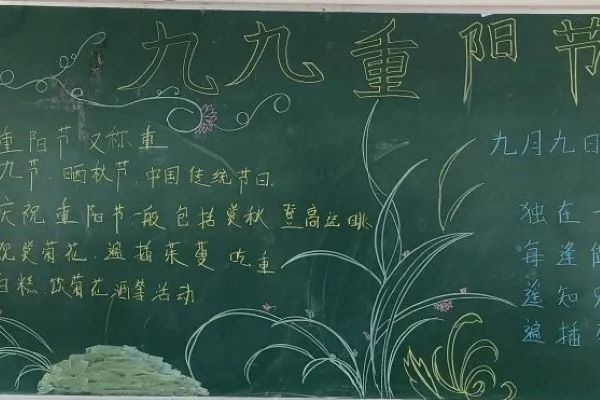 九九重阳节
重阳节又称重
九节、晒秋节,中国传统节日.
庆祝重阳节一般包括赏秋 登高远眺
观赏菊花、遍插茱萸 吃重
阳糕 饮菊花酒等活动
九月九日
独在
每逢
遥知
遍插